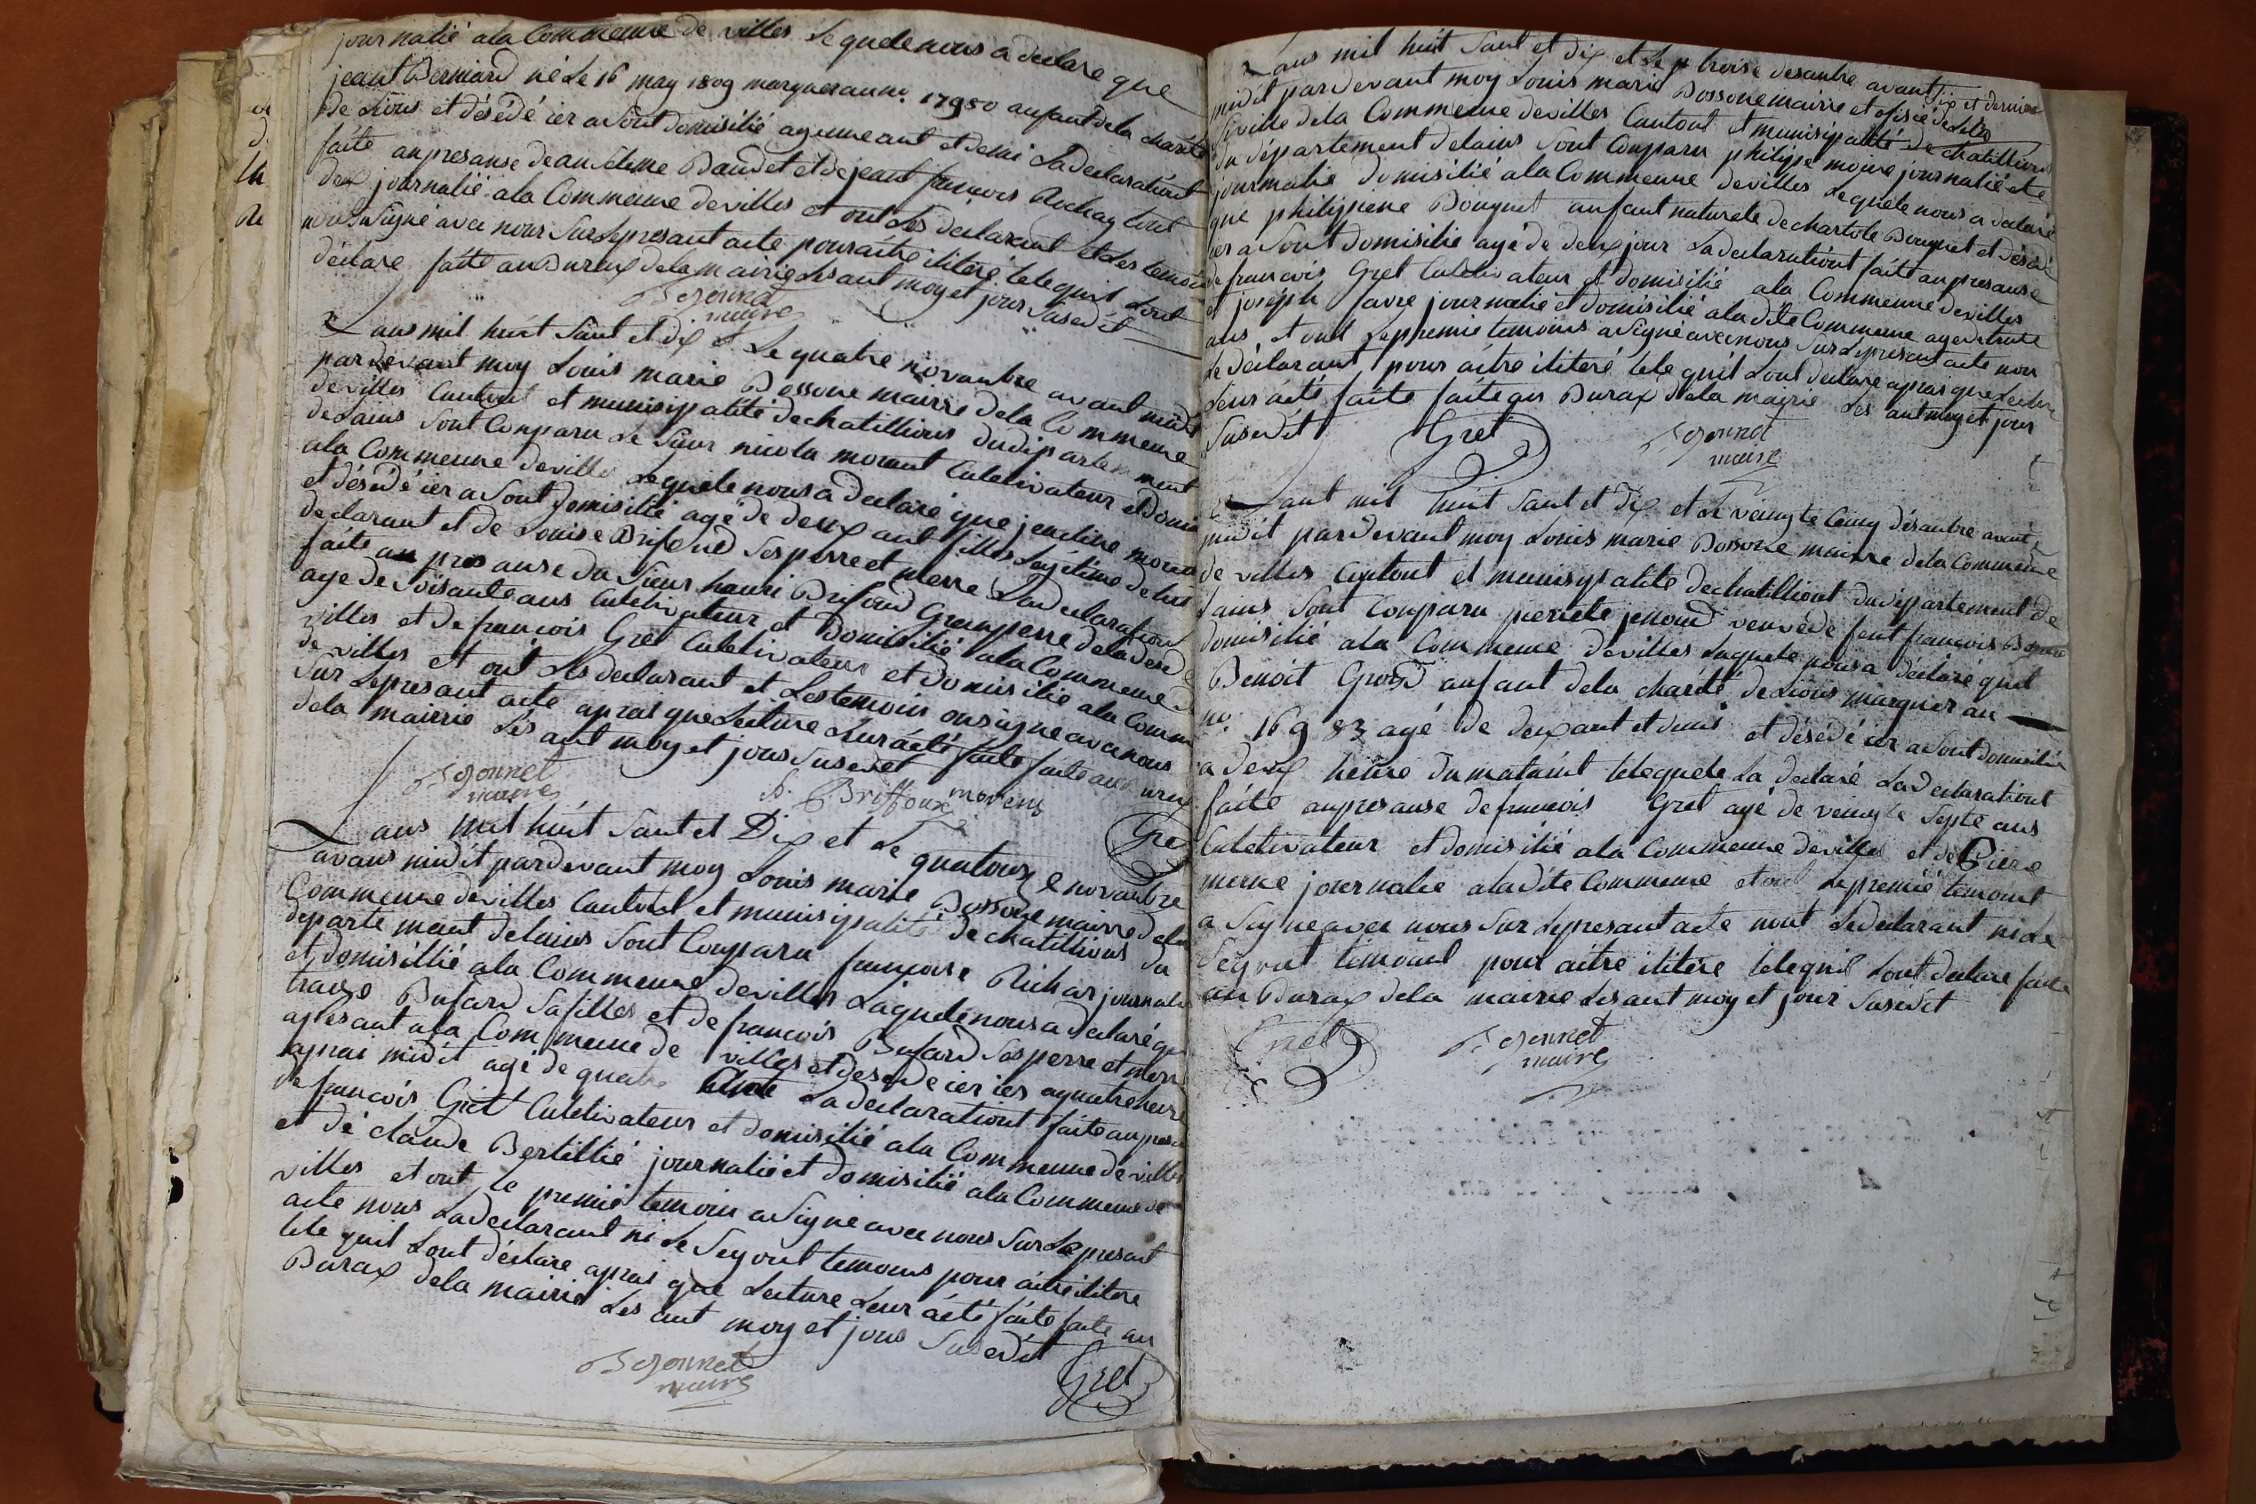 journalié ala Commeune de villes Lequele nous a declaré que
jeant Bernard né Le 16 may 1809 marquer au no. 17950 anfant dela charité
de Lious et désédé ier a sont domisilié agé une ant et demi La declarationt
faite an presanse de anselme Baudet et de jeant francois Rochay tout
deux journalié ala Commeune de villes et ont Les declarant et Les temoin
nous signé avec nous sur Lepresant acte pour aitre ilitere telequil Lont
declare faite au Buraux dela mairie Les ant moy et jour Susedit
Bezonnet
maire
Lans mil huit Sant et dix et Le quatre novanbre avant midit
pardevant moy Louis marie Bossone mairre dela Commeune
de villes Cantont et munisipalité de chatillions dudipartement
de Lains Sont Conparu Le Sieur nicola morant Culetivateur et domisi
ala Commeune de villes Lequele nous a declaré que jeacline morant
et désédé ier a Sont domisilié agé de deux ant filles Lagitime de lui
declarant et de Louise Brifoud Sesperre et merre La declaration
faite an presanse du Sieur hanri Brifoud Granperre dela desedé
age de Soisante ans Culetivateur et Domisilié ala Commeune de
villes et de francois Gret Culetivateur et domisilié ala Comm
de villes et ont Les declarant et Les temoin onsigne avec nous
Sur Lepresant acte aprai que Lecture Leur áeté faite faite au Buraux
dela mairrie Les ant moy et jour Susedit
Bezonnet
maire
h. Briffoux morent
Gret
Lans mil huit Sant et Dix et Le quatorze novanbre
avans midit pardevant moy Louis marie Bossone mairre dela
Commeune de villes Cantont et munisipalité de chatillions du
departemant de Lains Sont Conparu françoise Richar journalié
et domisillié ala Commeune de villes Laquele nous a declaré que
traise Bufard Safilles et de francois Bufard Sesperre et merre
apresant ala Commeune de villes et desede ier ier a quatre heure
aprai midit agé de quatre La declarationt faite an presanse
de francois Gret Culetivateur et domisilié ala Commeune de villes
et de claude Bertillié journalié et domisilié ala Commeune de
villes et ont Le premié temoin a Signé avec nous Sur Lepresant
acte nous La declarant ni Le Segont temoins pour aitre ilitere
tele quil Lont déclare aprai que Lecture Leur áeté faite faite au
Buraux dela mairie Les ant moy et jour Susedit
Bezonnet
maire
Gret
Lans mil huit Sant et dix et Le troise desanbre avant dix et demi
midit pardevant moy Louis marie Bossone mairre et ofisié de Leta
Siville dela Commeune de villes Cantont et munisipalité de chatillions
du département de Lains Sont Conparu philippe moine journalié et
journalié domisilié ala Commeune de villes Lequele nous a declaré
que philipene Bouquet anfant naturele de charlote Bouquet et désédé
ier a Sont domisilié agé de deux jour La declarationt faite an presanse
de francois Gret Culetivateur et domisilié ala Commeune de villes
et joseph favre journalié et domisilié ala dite Commeune age de trante
ans et ont Le premié temoins a Signé avec nous Sur Lepresant acte non
Le déclarant pour aitre ilitere tele quil Lont declare aprai que Lecture
Leur áeté faite faite au Buraux dela mairie Les ant moy et jour
Susedit
Gret
Bezonnet
maire
Lant mil huit Sant et Dix et Le vaingte Cainq désanbre avant
midit pardevant moy Louis marie Bossone mairre dela Commeune
de villes Cantont et munisypalité de chatilliont dudépartement de
Lains Sont Conparu pierrete jenoud veuve de feut francois
domisilié ala Commeune de villes Laquele nous a déclaré quil
Benoit Grosd anfant dela charité de Lious marquer au
no. 16983 agé de deux ant et demi et désédé ier a Sont domisilié
a deux heure du mataint telequele La declaré La declarationt
faite an presanse de francois Gret agé de vaingte Septe ans
Culetivateur et domisilié ala Commeune de villes et de Pierre
merme journalié aladite Commeune et ont Le premié temoint
a Signe avec nous Sur Lepresant acte nont Le declarant ni Le
Segont temoint pour aitre ilitere telequil Lont declare faite
au Buraux dela mairie Les ant moy et jour Susedit
Gret
Bezonnet
maire